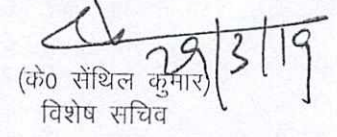 29/3/19
(के0 सेंथिल कुमार)
विशेष सचिव